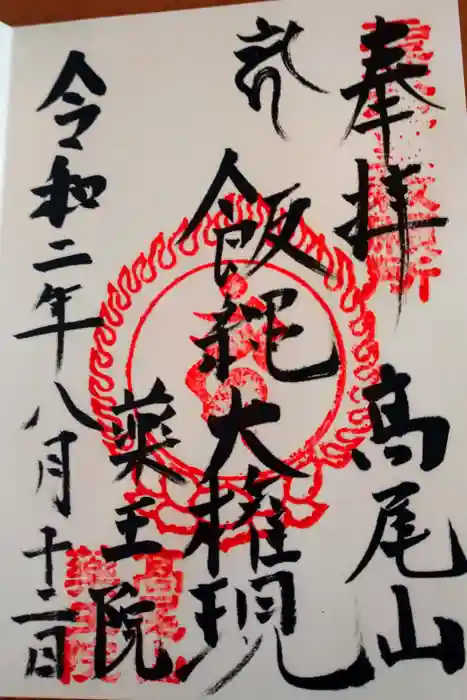 奉拝
高尾山
飯縄大権現
薬王院
令和二年八月十二日